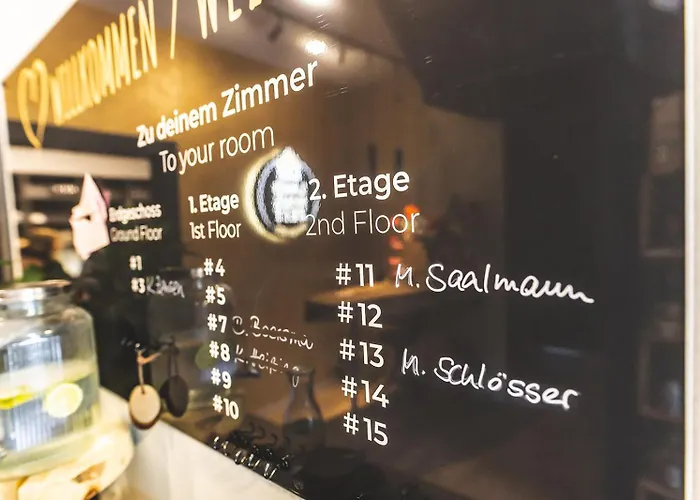 WILLKOMMEN / WEL
Zu deinem Zimmer
To your room
Erdgeschoss
Ground Floor
#1
#3
1. Etage
1st Floor
#4
#5
#7
#8
#9
#10
2. Etage
2nd Floor
#11 M. Saalmann
#12
#13 M. Schlösser
#14
#15